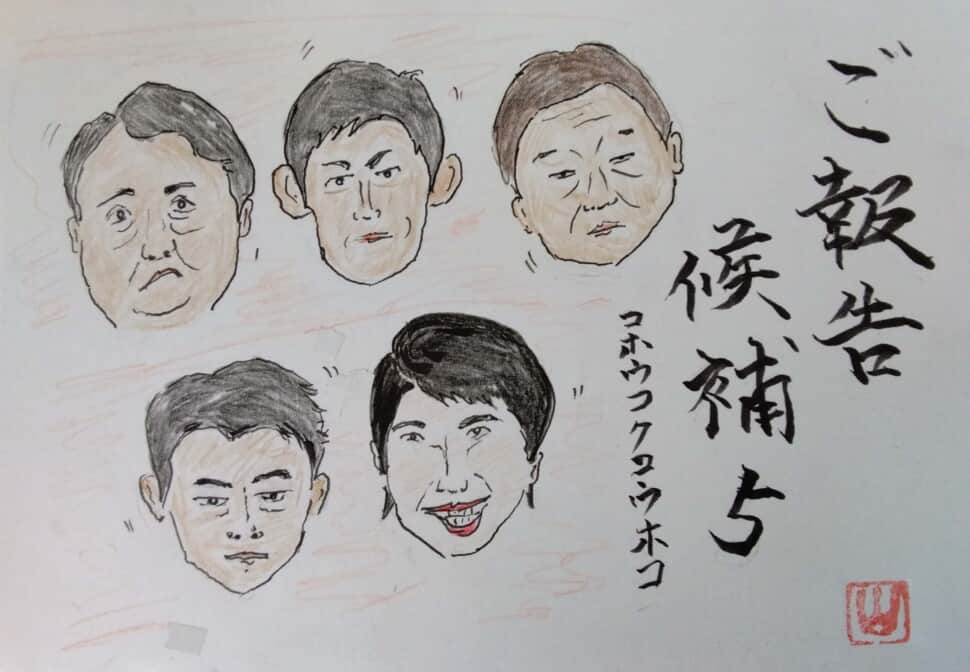 ご報告
候補5
コホウコクコウホコ